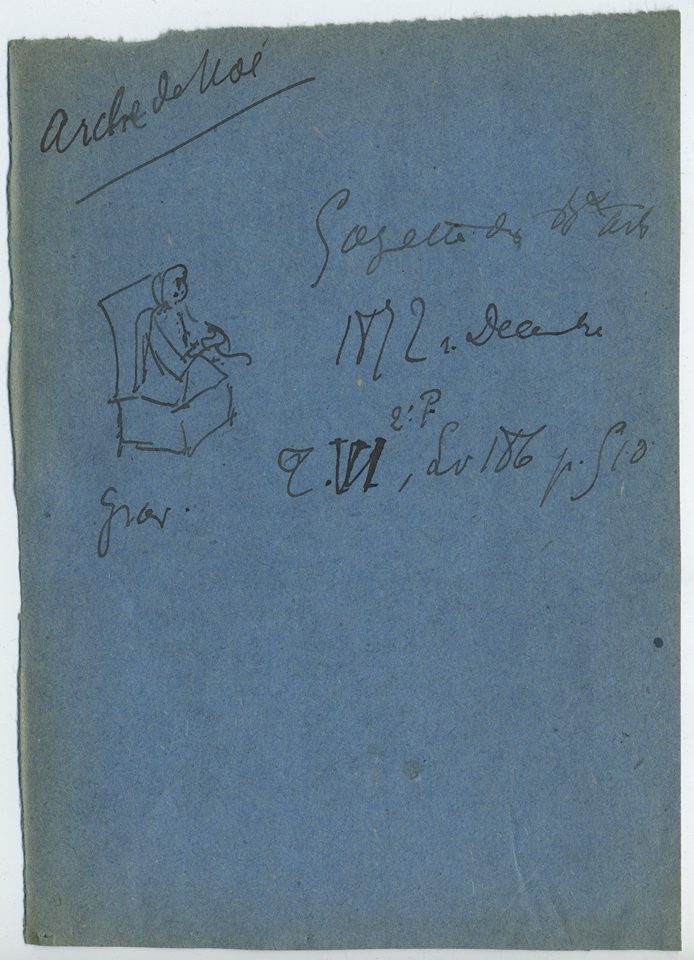 Arche de Noé
Gazette des Bx Arts
1872 1. Decembre
2e. P.
T. VI, Lv 186 p. 510
Grav.